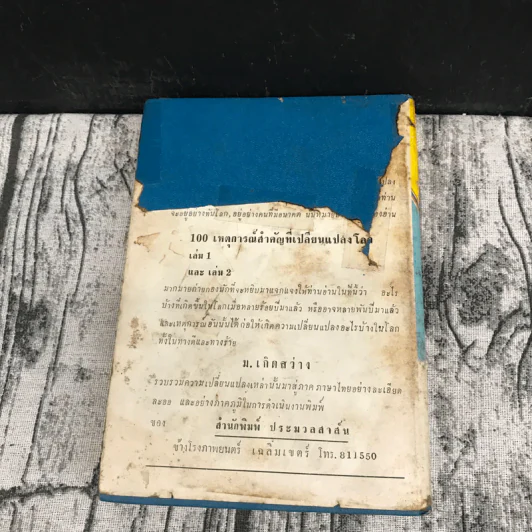 จะอยู่อย่างทันโลก, อยู่อย่างคนที่มีอนาคต
100 เหตุการณ์สำคัญที่เปลี่ยนแปลงโลก
เล่ม 1
และ เล่ม 2
มากมายก่ายกองนักที่จะหยิบมาแจกแจงให้ท่านอ่านในที่นี้ว่า อะไร
บ้างที่เกิดขึ้นในโลกเมื่อหลายร้อยปีมาแล้ว หรืออาจหลายพันปีมาแล้ว
และเหตุการณ์อันนั้นได้ก่อให้เกิดความเปลี่ยนแปลงอะไรบ้างในโลก
ทั้งในทางดีและทางร้าย
ม. เกิดสว่าง
รวบรวมความเปลี่ยนแปลงเหล่านั้นมาสู่ภาค ภาษาไทยอย่างละเอียด
ละออ และอย่างภาคภูมิในการดำเนินงานพิมพ์
ของ สำนักพิมพ์ ประมวลสาส์น
ข้างโรงภาพยนตร์ เฉลิมเขตร์ โทร. 811550